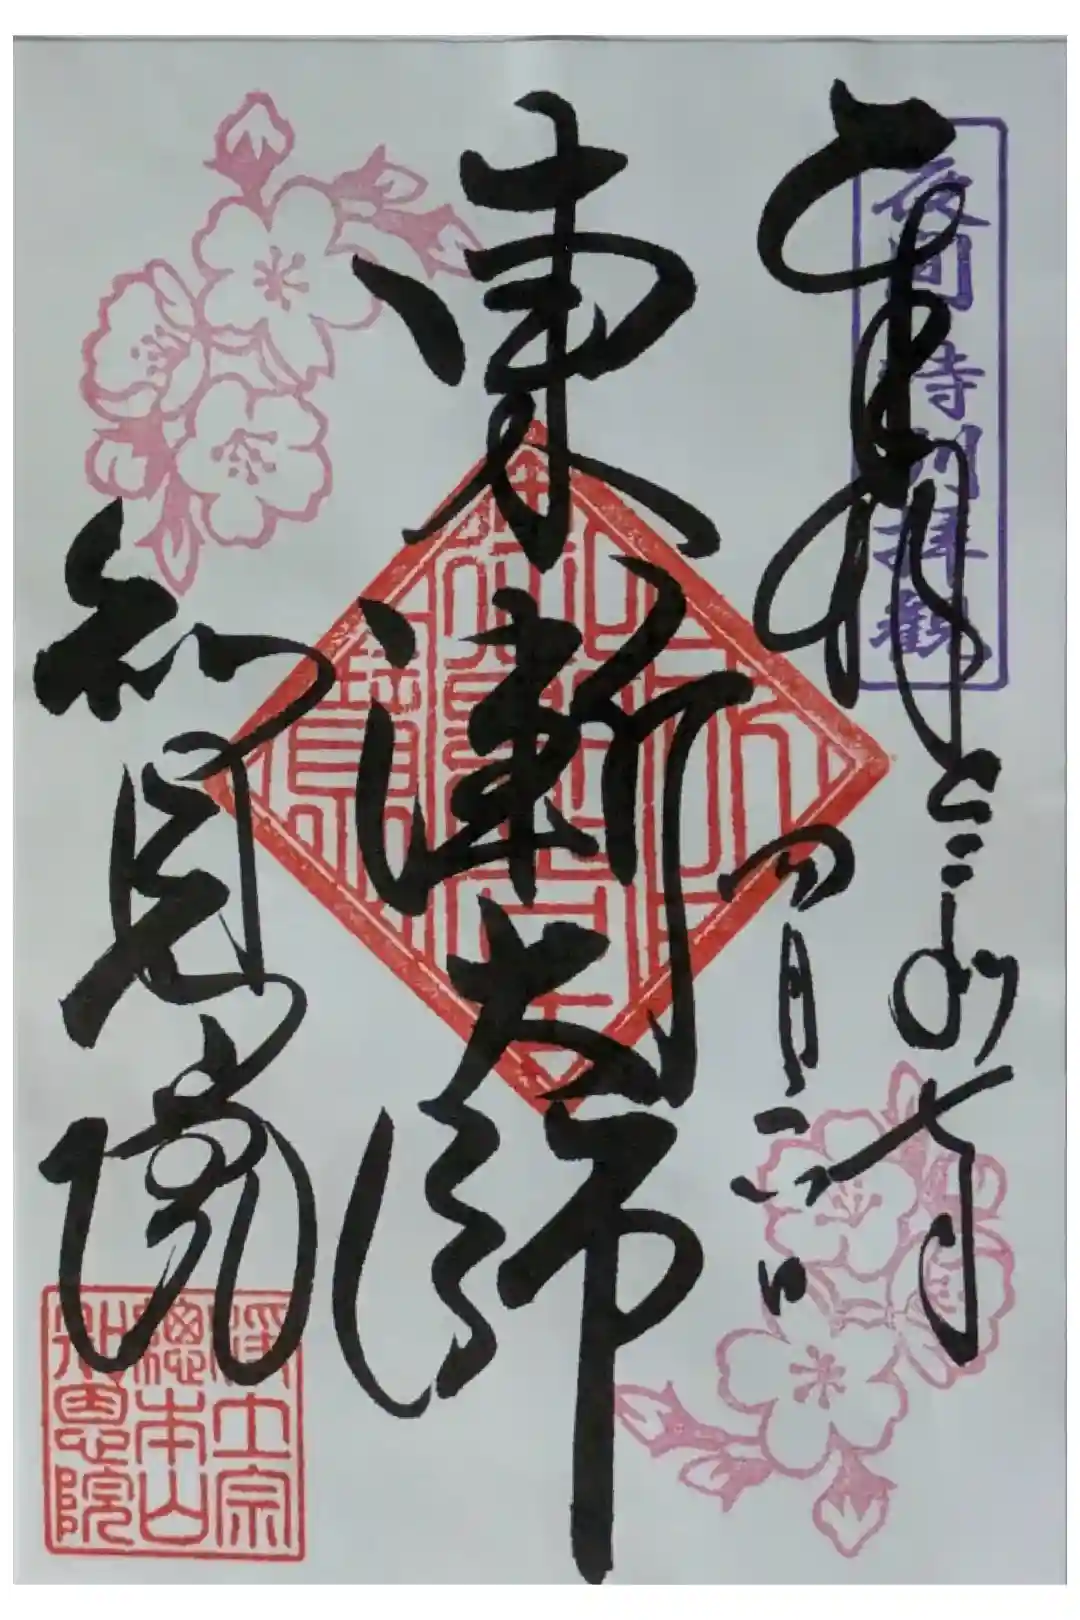 夜間特別拝観
奉拝
令和七年
四月
東漸大師
知恩院
淨土宗
總本山
知恩院